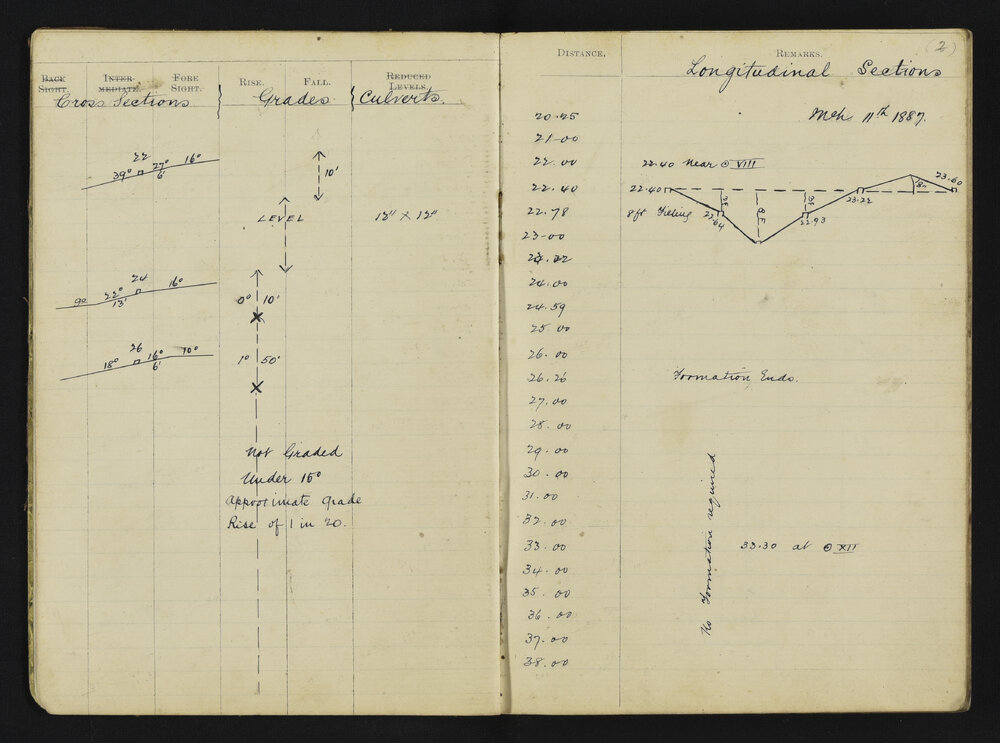 Back Sight. Inter-mediate. Fore Sight. Rise. Fall. Reduced Levels.
Cross Sections } Grades { Culverts.
22
39° 27° 16°
6'
10'
LEVEL
12" X 12"
24
9° 22° 16°
13'
0° 10'
26
18° 16° 10°
6'
1° 50'
Not Graded
Under 15°
Approximate grade
Rise of 1 in 20.
(2)
Distance. Remarks.
Longitudinal Sections
Mch 11th 1887.
20.25
21.00
22.00
22.40
22.78
23.00
24.00
24.59
25.00
26.00
26.26
27.00
28.00
29.00
30.00
31.00
32.00
33.00
34.00
35.00
36.00
37.00
38.00
22.40 Near ⊙ VIII
22.40
8ft Filling
22.64
22.93
23.22
18"
23.60
Formation Ends.
No Formation required
33.30 at ⊙ XII